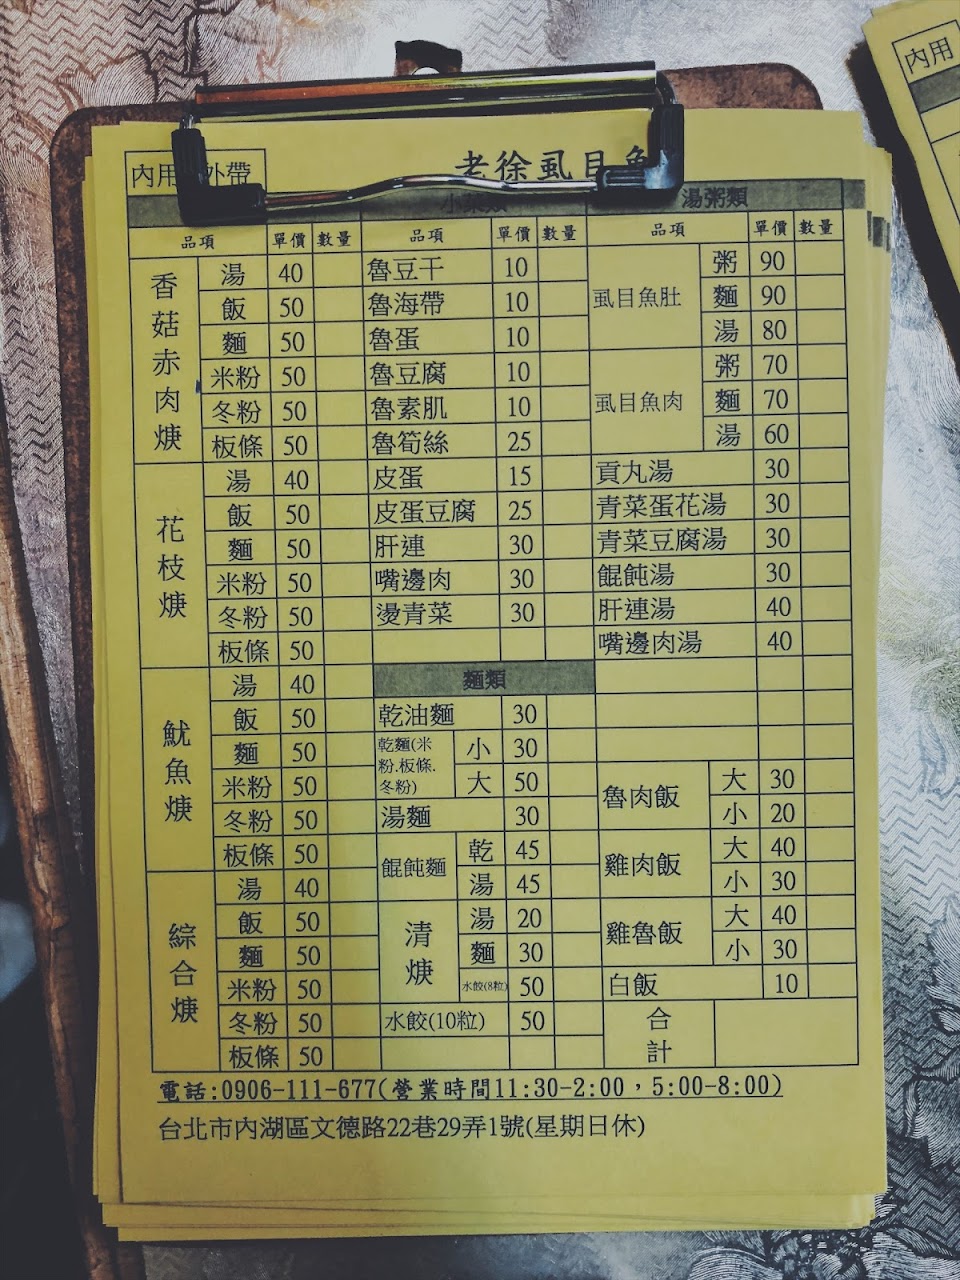 內用 外帶
老徐虱目魚
小菜類 湯粥類
品項 單價 數量 品項 單價 數量 品項 單價 數量
香菇赤肉焿
湯 40
飯 50
麵 50
米粉 50
冬粉 50
板條 50
花枝焿
湯 40
飯 50
麵 50
米粉 50
冬粉 50
板條 50
魷魚焿
湯 40
飯 50
麵 50
米粉 50
冬粉 50
板條 50
綜合焿
湯 40
飯 50
麵 50
米粉 50
冬粉 50
板條 50
魯豆干 10
魯海帶 10
魯蛋 10
魯豆腐 10
魯素肌 10
魯筍絲 25
皮蛋 15
皮蛋豆腐 25
肝連 30
嘴邊肉 30
燙青菜 30
麵類
乾油麵 30
乾麵(米
粉.板條.
冬粉)
小 30
大 50
湯麵 30
餛飩麵
乾 45
湯 45
清焿
湯 20
麵 30
水餃(8粒) 50
水餃(10粒) 50
虱目魚肚
粥 90
麵 90
湯 80
虱目魚肉
粥 70
麵 70
湯 60
貢丸湯 30
青菜蛋花湯 30
青菜豆腐湯 30
餛飩湯 30
肝連湯 40
嘴邊肉湯 40
魯肉飯
大 30
小 20
雞肉飯
大 40
小 30
雞魯飯
大 40
小 30
白飯 10
合計
電話:0906-111-677(營業時間11:30-2:00，5:00-8:00)
台北市內湖區文德路22巷29弄1號(星期日休)
內用